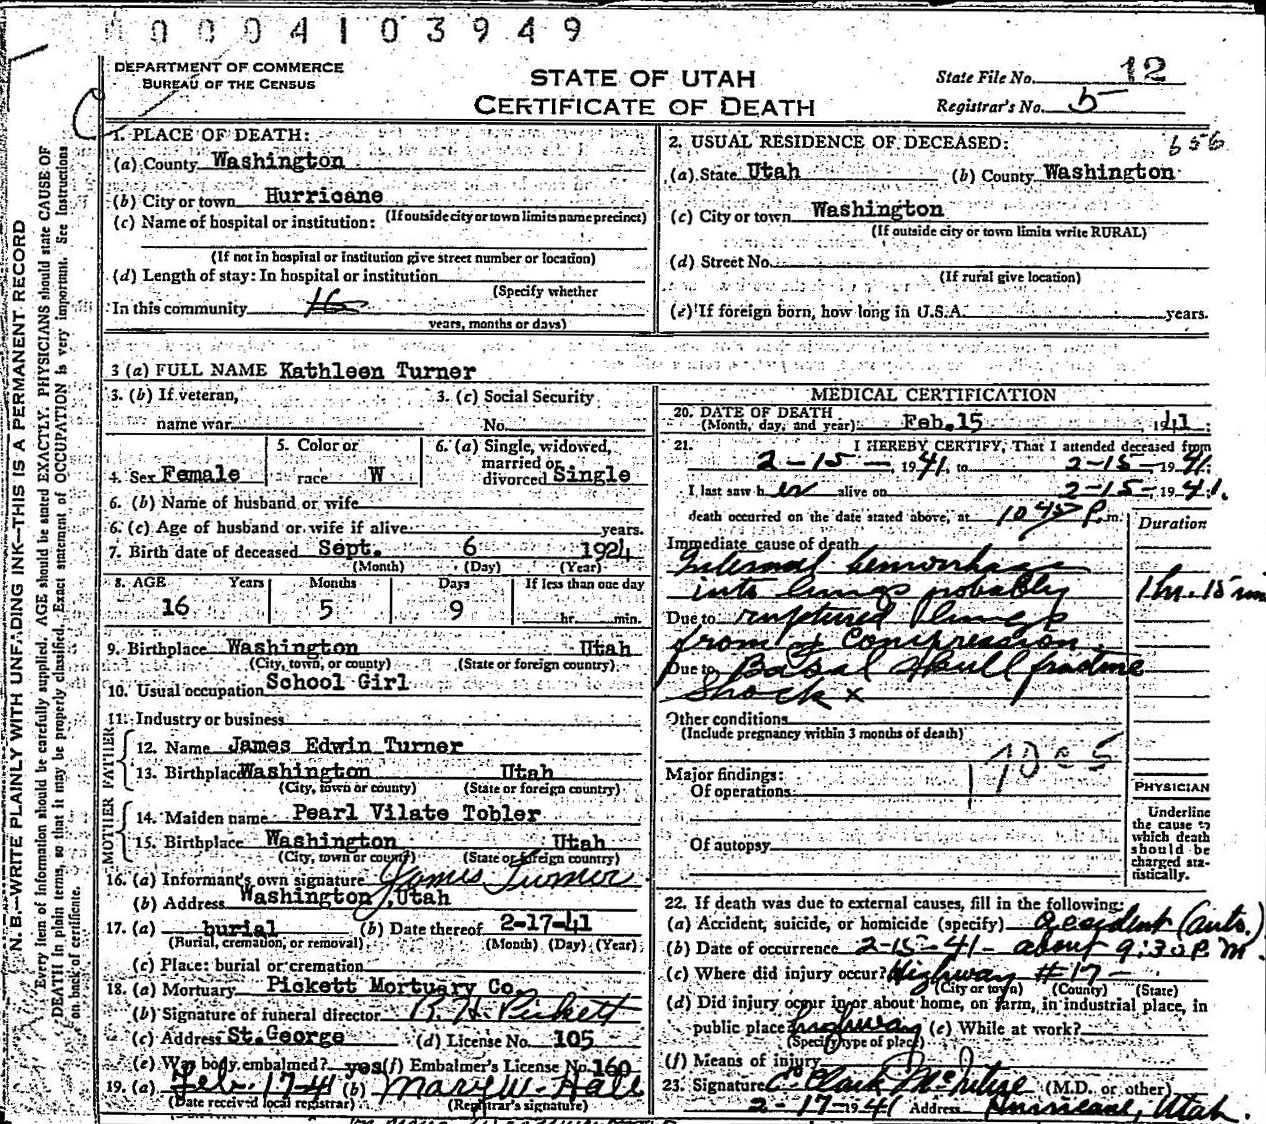 0004103949
DEPARTMENT OF COMMERCE
BUREAU OF THE CENSUS
STATE OF UTAH
CERTIFICATE OF DEATH
State File No. 12
Registrar's No. 5
N. B.—WRITE PLAINLY WITH UNFADING INK—THIS IS A PERMANENT RECORD
Every item of information should be carefully supplied. AGE should be stated EXACTLY. PHYSICIANS should state CAUSE OF
DEATH in plain terms, so that it may be properly classified. Exact statement of OCCUPATION is very important. See Instructions
on back of certificate.
1. PLACE OF DEATH:
(a) County Washington
(b) City or town Hurricane
(If outside city or town limits name precinct)
(c) Name of hospital or institution:
(If not in hospital or institution give street number or location)
(d) Length of stay: In hospital or institution
(Specify whether
In this community 16
years, months or days)
2. USUAL RESIDENCE OF DECEASED: 656
(a) State Utah (b) County Washington
(c) City or town Washington
(If outside city or town limits write RURAL)
(d) Street No.
(If rural give location)
(e) If foreign born, how long in U.S.A. years.
3 (a) FULL NAME Kathleen Turner
3. (b) If veteran, 3. (c) Social Security
name war No.
4. Sex Female 5. Color or race W 6. (a) Single, widowed, married or divorced Single
6. (b) Name of husband or wife
6. (c) Age of husband or wife if alive years.
7. Birth date of deceased Sept. 6 1924
(Month) (Day) (Year)
8. AGE Years Months Days If less than one day
16 5 9 hr. min.
9. Birthplace Washington Utah
(City, town, or county) (State or foreign country)
10. Usual occupation School Girl
11. Industry or business
FATHER
12. Name James Edwin Turner
13. Birthplace Washington Utah
(City, town or county) (State or foreign country)
MOTHER
14. Maiden name Pearl Vilate Tobler
15. Birthplace Washington Utah
(City, town or county) (State or foreign country)
16. (a) Informant's own signature James Turner
(b) Address Washington, Utah
17. (a) burial (b) Date thereof 2-17-41
(Burial, cremation, or removal) (Month) (Day) (Year)
(c) Place: burial or cremation
18. (a) Mortuary Pickett Mortuary Co.
(b) Signature of funeral director B. H. Pickett
(c) Address St. George (d) License No. 105
(e) Was body embalmed? yes (f) Embalmer's License No. 160
19. (a) Feb. 17-41 (b) Mary W. Hall
(Date received local registrar) (Registrar's signature)
MEDICAL CERTIFICATION
20. DATE OF DEATH
(Month, day, and year) Feb. 15 1941
21. I HEREBY CERTIFY, That I attended deceased from
2-15-, 1941, to 2-15-1941.
I last saw her alive on 2-15-, 1941.
death occurred on the date stated above, at 10 45 P. m.
Duration
Immediate cause of death
Internal hemorrhage
into lungs probably 1 hr. 15 min
Due to ruptured lungs
from compression
Due to Basal skull fracture
Shock x
Other conditions
(Include pregnancy within 3 months of death)
Major findings:
Of operations
Of autopsy
PHYSICIAN
Underline
the cause to
which death
should be
charged sta-
tistically.
22. If death was due to external causes, fill in the following:
(a) Accident, suicide, or homicide (specify) accident (auto.)
(b) Date of occurrence 2-15-41- about 9:30 P.M.
(c) Where did injury occur? Highway #17-
(City or town) (County) (State)
(d) Did injury occur in or about home, on farm, in industrial place, in
public place highway (e) While at work?
(Specify type of place)
(f) Means of injury
23. Signature C. Clark McIntire (M.D. or other)
2-17-1941 Address Hurricane, Utah.